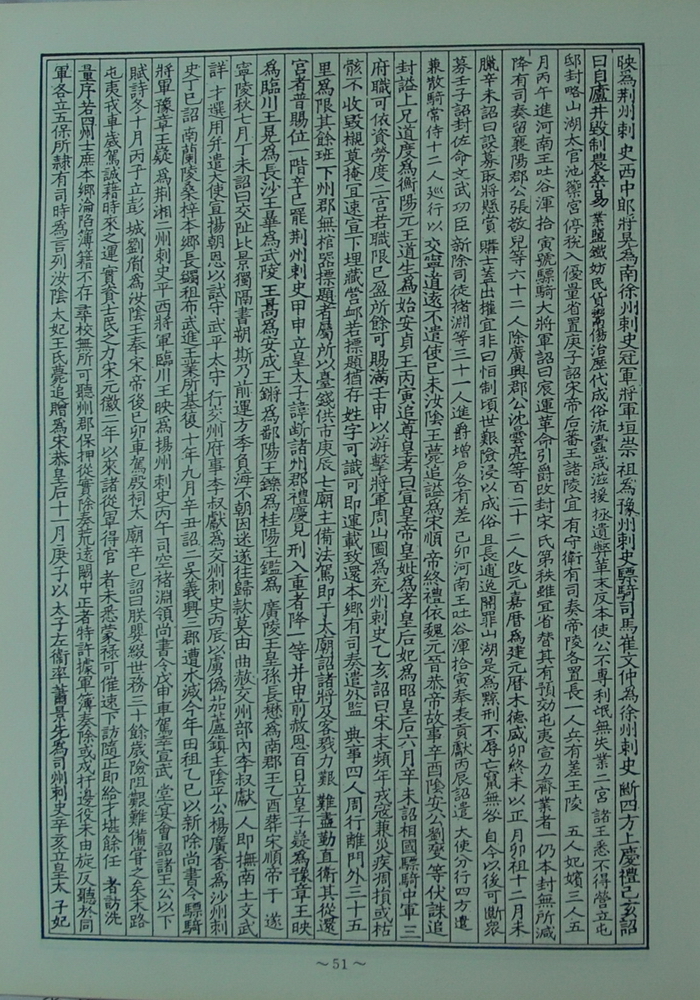 映爲荆州刺史西中郎將晃爲南徐州刺史冠軍將軍垣崇祖爲豫州刺史驃騎司馬崔文仲爲徐州刺史斷四方上慶禮己亥詔
曰自廬井毀制農桑易業鹽鐵妨民貨鬻傷治歷代成俗流蠹歲滋援拯遺弊革末反本使公不專利氓無失業二宮諸王悉不得營立屯
邸封略山湖太官池籞宮停稅入優量省置庚子詔宋帝后蕃王諸陵宜有守衛有司奏帝陵各置長一人兵有差王陵五人妃嬪三人五
月丙午進河南王吐谷渾拾寅號驃騎大將軍詔曰宸運革命引爵改封宋氏第秩雖宜省替其有預効屯夷宣力齊業者一仍本封無所減
降有司奏留襄陽郡公張敬兒等六十二人除廣興郡公沈曇亮等百二十二人改元嘉曆爲建元曆木德盛卯終未以正月卯祖十二月未
臘辛未詔曰設募取將懸賞購士蓋出權宜非曰恒制頃世艱險浸以成俗且長逋逸開罪山湖是爲黥刑不辱亡竄無咎自今以後可斷衆
募壬子詔封佐命文武功臣新除司徒褚淵等三十一人進爵增戶各有差己卯河南王吐谷渾拾寅奉表貢獻丙辰詔遣大使分行四方遣
兼散騎常侍十二人巡行以交寧道遠不遣使己未汝陰王薨追謚爲宋順帝終禮依魏元晉恭帝故事辛酉陰安公劉燮等伏誅追
封謚上兄道度爲衡陽元王道生爲始安貞王丙寅追尊皇考曰宣皇帝皇妣爲孝皇后妃爲昭皇后六月辛未詔相國驃騎中軍三
府職可依資勞度二宮若職限已盈所餘可賜滿壬申以游擊將軍周山圖爲兖州刺史乙亥詔曰宋末頻年戎寇兼災疾凋損或枯
骸不收毀櫬莫掩宜速宣下埋藏營卹若標題猶存姓字可識可即運載致還本鄉有司奏遣外監典事四人周行離門外三十五
里爲限其餘班下州郡無棺器標題者屬所以臺錢供市庚辰七廟主備法駕即于太廟詔諸將及客戮力艱難盡勤直衛其從還
宮者普賜位一階辛巳罷荆州刺史甲申立皇太子諱斷諸州郡禮慶見刑入重者降一等并申前赦恩百日立皇子嶷爲豫章王映
爲臨川王晃爲長沙王曅爲武陵王暠爲安成王鏘爲鄱陽王鑠爲桂陽王鑑爲廣陵王皇孫長懋爲南郡王乙酉葬宋順帝于遂
寧陵秋七月丁未詔曰交阯比景獨隔書朔斯乃前運方季負海不朝因迷遂往歸款莫由曲赦交州部內李叔獻一人即撫南土文武
詳才選用并遣大使宣揚朝恩以試守武平太守行交州府事李叔獻爲交州刺史丙辰以虜僞茄蘆鎮主陰平公楊廣香爲沙州刺
史丁巳詔南蘭陵桑梓本鄉長蠲租布武進王業所基復十年九月辛丑詔二吳義興三郡遭水減今年田租乙巳以新除尚書令驃騎
將軍豫章王嶷爲荆湘二州刺史平西將軍臨川王映爲揚州刺史丙午司空褚淵領尚書令戊申車駕幸宣武堂宴會詔諸王公以下
賦詩冬十月丙子立彭城劉胤爲汝陰王奉宋帝後己卯車駕殷祠太廟辛巳詔曰朕嬰綴世務三十餘歲險阻艱難備嘗之矣末路
屯夷戎車歲駕誠藉時來之運實資士民之力宋元徽二年以來諸從軍得官者未悉蒙祿可催速下訪隨正即給才堪餘任者訪洗
量序若四州士庶本鄉淪陷簿籍不存尋校無所可聽州郡保押從實除奏荒遠闕中正者特許據軍簿奏除或戍扞邊役未由旋反聽於同
軍各立五保所隸有司時爲言列汝陰太妃王氏薨追贈爲宋恭皇后十一月庚子以太子左衛率蕭景先爲司州刺史辛亥立皇太子妃
~51~